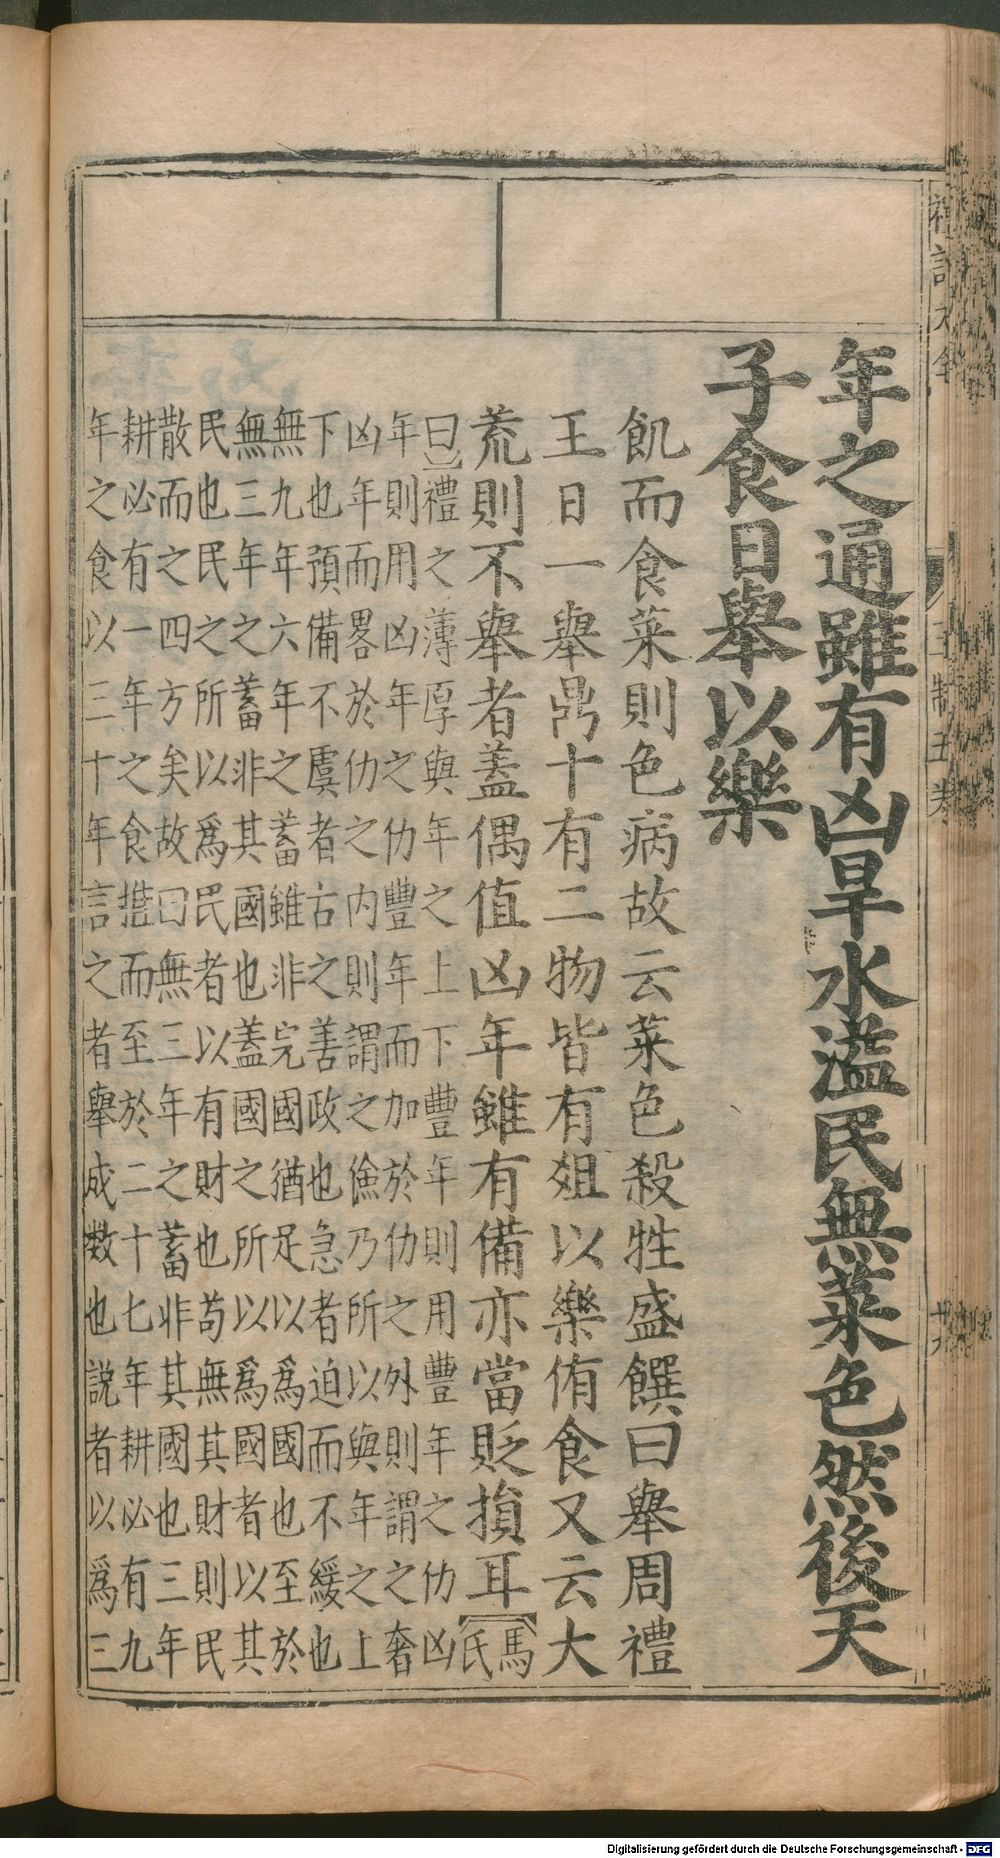 年之通雖有凶旱水溢民無菜色然後天
子食日舉以樂
飢而食菜則色病故云菜色殺牲盛饌曰舉周禮
王日一舉鼎十有二物皆有俎以樂侑食又云大
荒則不舉者蓋偶值凶年雖有備亦當貶損耳馬氏
曰禮之薄厚與年之上下豐年則用豐年之仂凶
年則用凶年之仂豐年而加於仂之外則謂之奢
凶年而畧於仂之内則謂之儉乃所以與年之上
下也預備不虞者古之善政也急者迫而不緩也
無九年六年之蓄雖非完國猶足以為國也至於
無三年之蓄非其國也蓋國之所以為國者以其
民也民之所以爲民者以有財也苟無其財則民
散而之四方矣故曰無三年之蓄非其國也三年
耕必有一年之食推而至於二十七年耕必有九
年之食以三十年言之者舉成數也説者以爲三
禮記大全
王制五卷
廿九
Digitalisierung gefördert durch die Deutsche Forschungsgemeinschaft - DFG